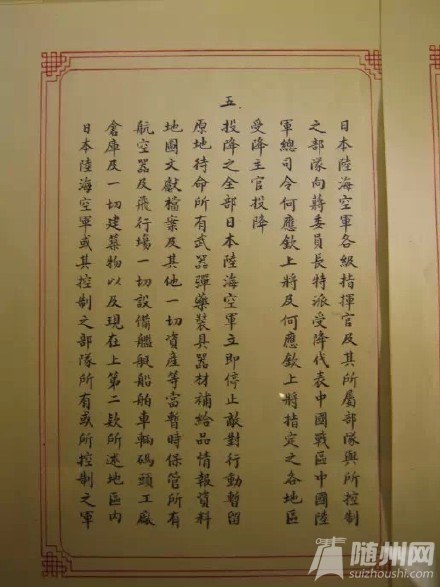 日本陸海空軍各級指揮官及其所屬部隊與所控制
之部隊向蔣委員長特派受降代表中國戰區中國陸
軍總司令何應欽上將及何應欽上將指定之各地區
受降主官投降
五
投降之全部日本陸海空軍立即停止敵對行動暫留
原地待命所有武器彈藥裝具器材補給品情報資料
地圖文獻檔案及其他一切資產等當暫時保管所有
航空器及飛行場一切設備艦艇船舶車輛碼頭工廠
倉庫及一切建築物以及現在上第二款所述地區內
日本陸海空軍或其控制之部隊所有或所控制之軍
随州网
suizhoushi.com